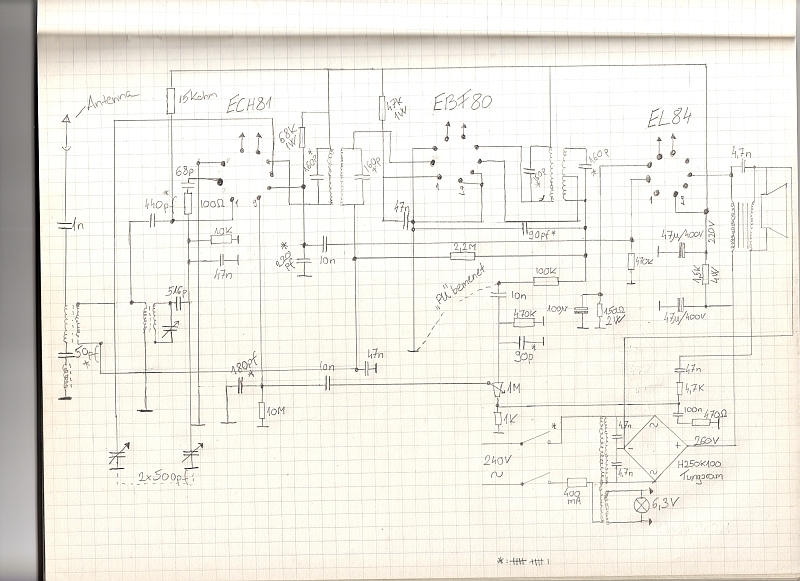 Antenna
15Kohm
ECH81
68K
1W
47K
1W
EBF80
EL84
4,7n
1n
68p
440pf
100Ω
10K
47n
160p
*
160p
*
47n
160p
*
90pf*
10n
2,2M
470K
47µ/400V
220V
1,5K
4W
47µ/400V
516p
50pf
*
"PU" bemenet
100K
10n
470K
90p
*
100µ
150Ω
2W
180pf
*
10n
47n
10M
1M
1K
47n
4,7K
100n
470Ω
2x500pf
240V
~
400
mA
4,7n
4,7n
260V
H250K100
Tungsram
6,3V